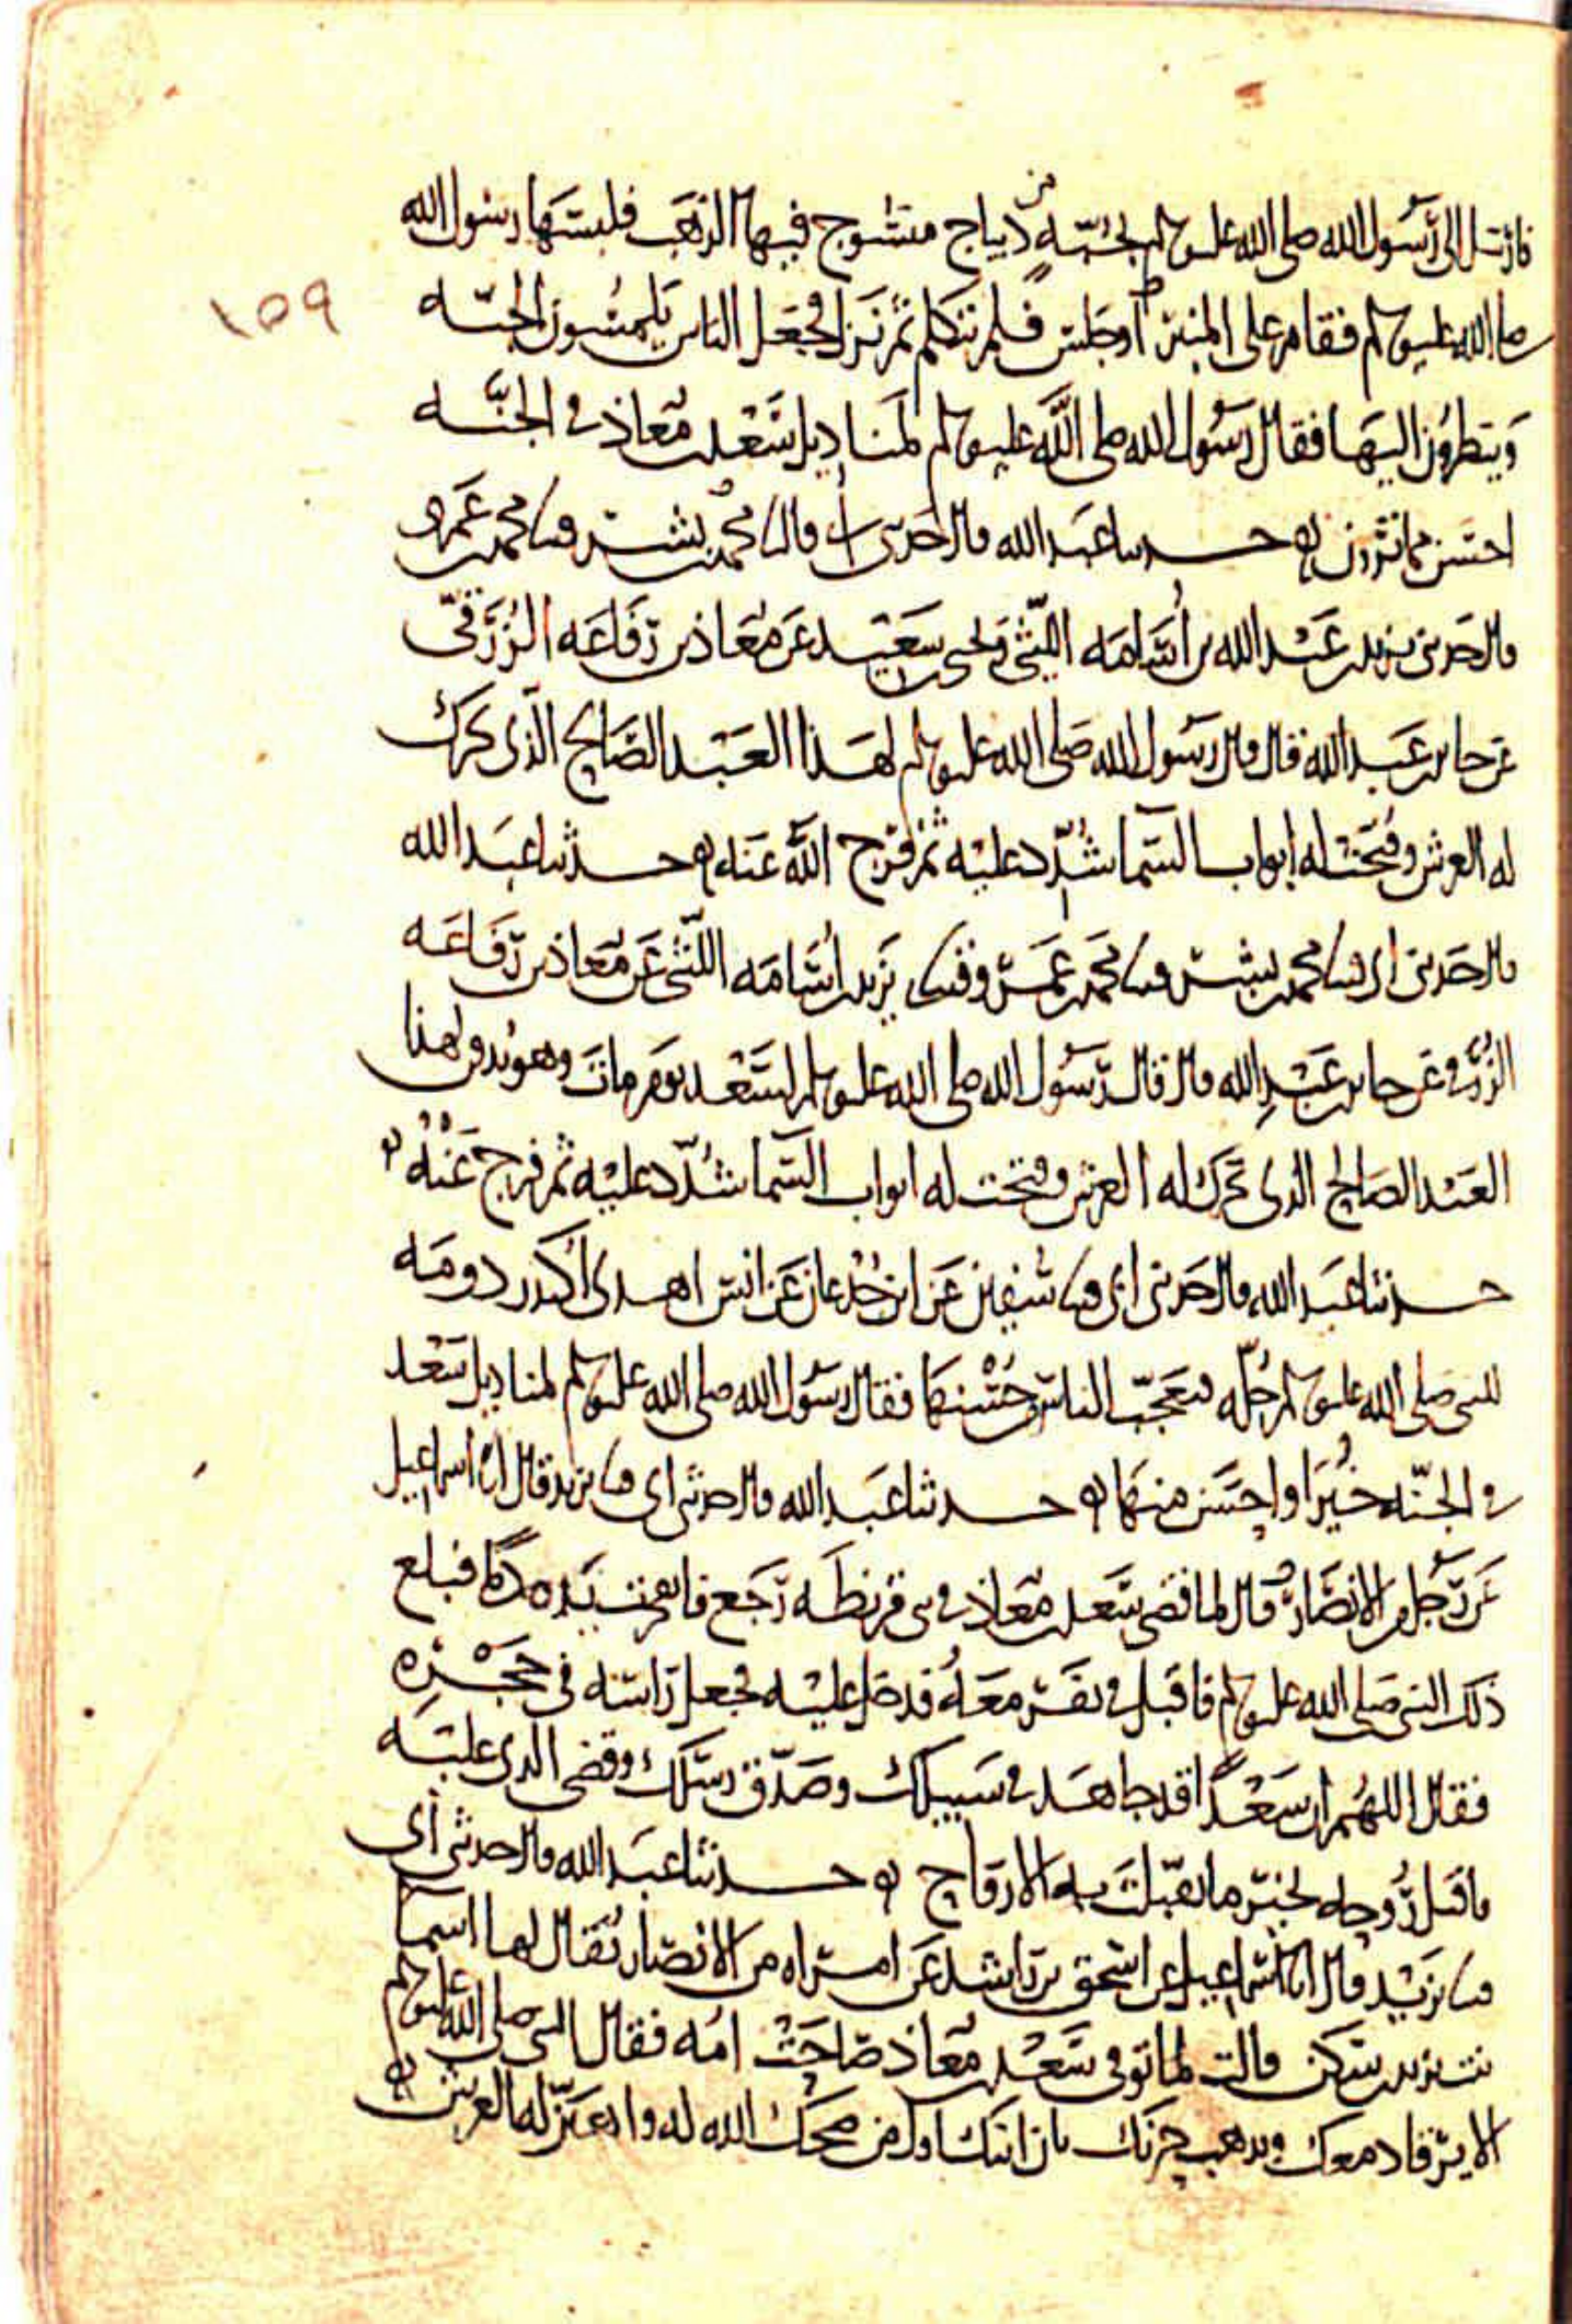 فارسل الى رسول الله صلى الله عليه وسلم بجبة من ديباج منسوج فيها الذهب فلبسها رسول الله
صلى الله عليه وسلم فقام على المنبر او جلس فلم يتكلم ثم نزل فجعل الناس يلمسون الجبه
وينظرون اليها فقال رسول الله صلى الله عليه وسلم لمناديل سعد بن معاذ في الجنه
احسن مما ترون حدثنا عبد الله قال حدثني ابي قال ثنا محمد بن بشر قثنا محمد بن عمرو
قال حدثني يزيد بن عبد الله بن اسامه الليثي ويحيى بن سعيد عن معاذ بن رفاعه الزرقي
عن جابر بن عبد الله قال قال رسول الله صلى الله عليه وسلم لهذا العبد الصالح الذي تحرك
له العرش وفتحت له ابواب السما شدد عليه ثم فرج الله عنه حدثنا عبد الله
قال حدثني ابي قثنا محمد بن بشر قثنا محمد بن عمرو قثنا يزيد بن اسامه الليثي عن معاذ بن رفاعه
الزرقي عن جابر بن عبد الله قال قال رسول الله صلى الله عليه وسلم لسعد يوم مات وهو يدفن لهذا
العبد الصالح الذي تحرك له العرش وفتحت له ابواب السما شدد عليه ثم فرج عنه
حدثنا عبد الله قال حدثني ابي قثنا سفين عن ابن جدعان عن انس اهدى اكيدر دومه
للنبي صلى الله عليه وسلم حله فتعجب الناس من حسنها فقال رسول الله صلى الله عليه وسلم لمناديل سعد
في الجنه خير او احسن منها حدثنا عبد الله قال حدثني ابي قثنا يزيد قال انا اسماعيل
عن رجل من الانصار قال لما قضى سعد بن معاذ في بني قريظه رجع فانفجرت يده دما فبلغ
ذلك النبي صلى الله عليه وسلم فاقبل في نفر معه فدخل عليه فجعل راسه في حجره
فقال اللهم ان سعدا قد جاهد في سبيلك وصدق رسلك وقضى الذي عليه
فاقبل روحه بخير ما تقبلت به الارواح حدثنا عبد الله قال حدثني ابي
قثنا يزيد قال انا اسماعيل عن اسحق بن راشد عن امراه من الانصار يقال لها اسما
بنت يزيد بن سكن قالت لما توفي سعد بن معاذ صاحت امه فقال النبي صلى الله عليه وسلم
الا يرقا دمعك ويذهب حزنك بان ابنك اول من ضحك الله له واهتز له العرش
١٥٩